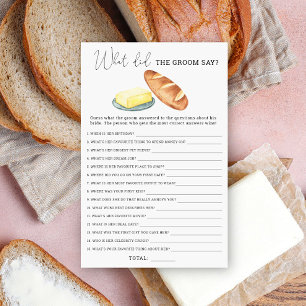 What did THE GROOM SAY?
Guess what the groom answered to the questions about his
bride. The person who gets the most correct answer wins!
1. WHEN IS HER BIRTHDAY?
2. WHAT'S HER FAVOURITE THING TO SPEND MONEY ON?
3. WHAT'S HER BIGGEST PET PEEVE?
4. WHAT'S HER DREAM JOB?
5. WHERE IS HER FAVOURITE PLACE TO
6. WHERE DID YOU GO ON YOUR FIRST DATE?
7. WHAT'S HER MOST FAVORITE OUTFIT TO WEAR?
8. WHERE WAS YOUR FIRST KISS?
9. WHAT DOES SHE DO THAT REALLY ANNOYS YOU?
10. WHAT
11. WHAT'S HER FAVORITE
12. WHAT IS HER IDEAL DATE?
13. WHAT WAS THE FIRST GIFT YOU GAVE HER?
14. WHO IS HER CELEBRITY CRUSH?
15. WHAT'S YOUR FAVORITE THING ABOUT HER?
TOTAL: